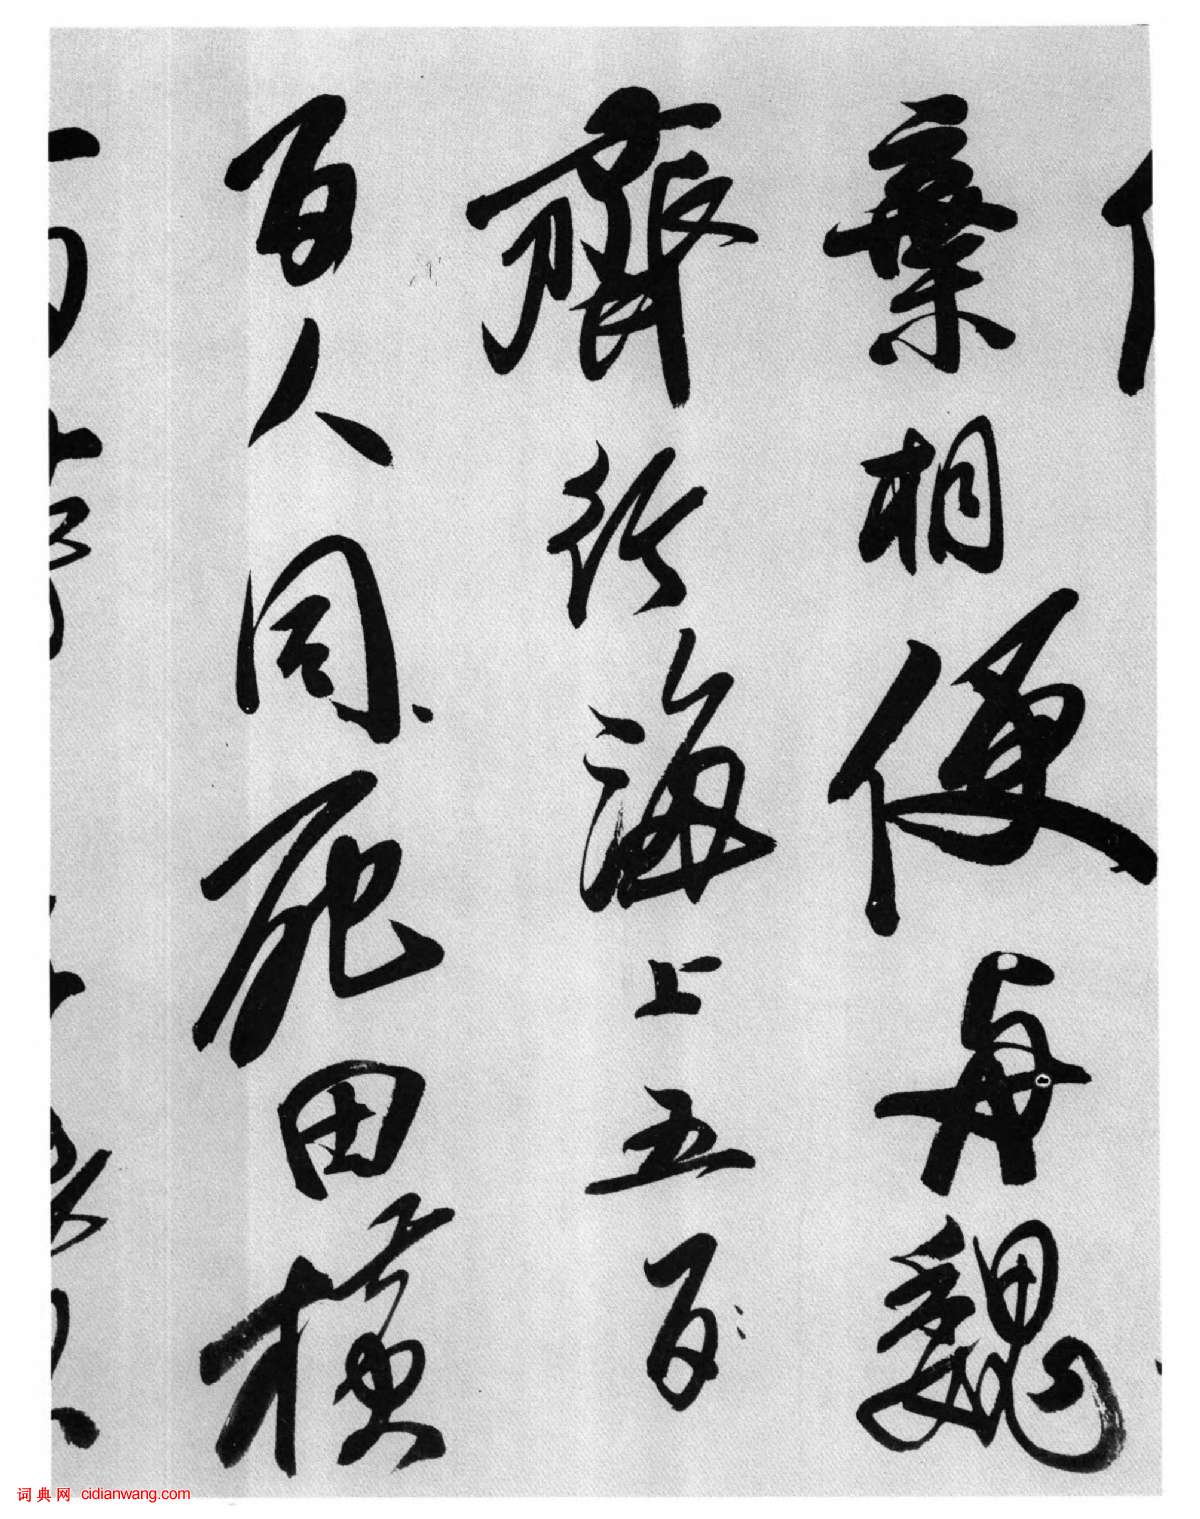 棄相便與魏
齊行海上五百
百人同死田橫
词典网 cidianwang.com